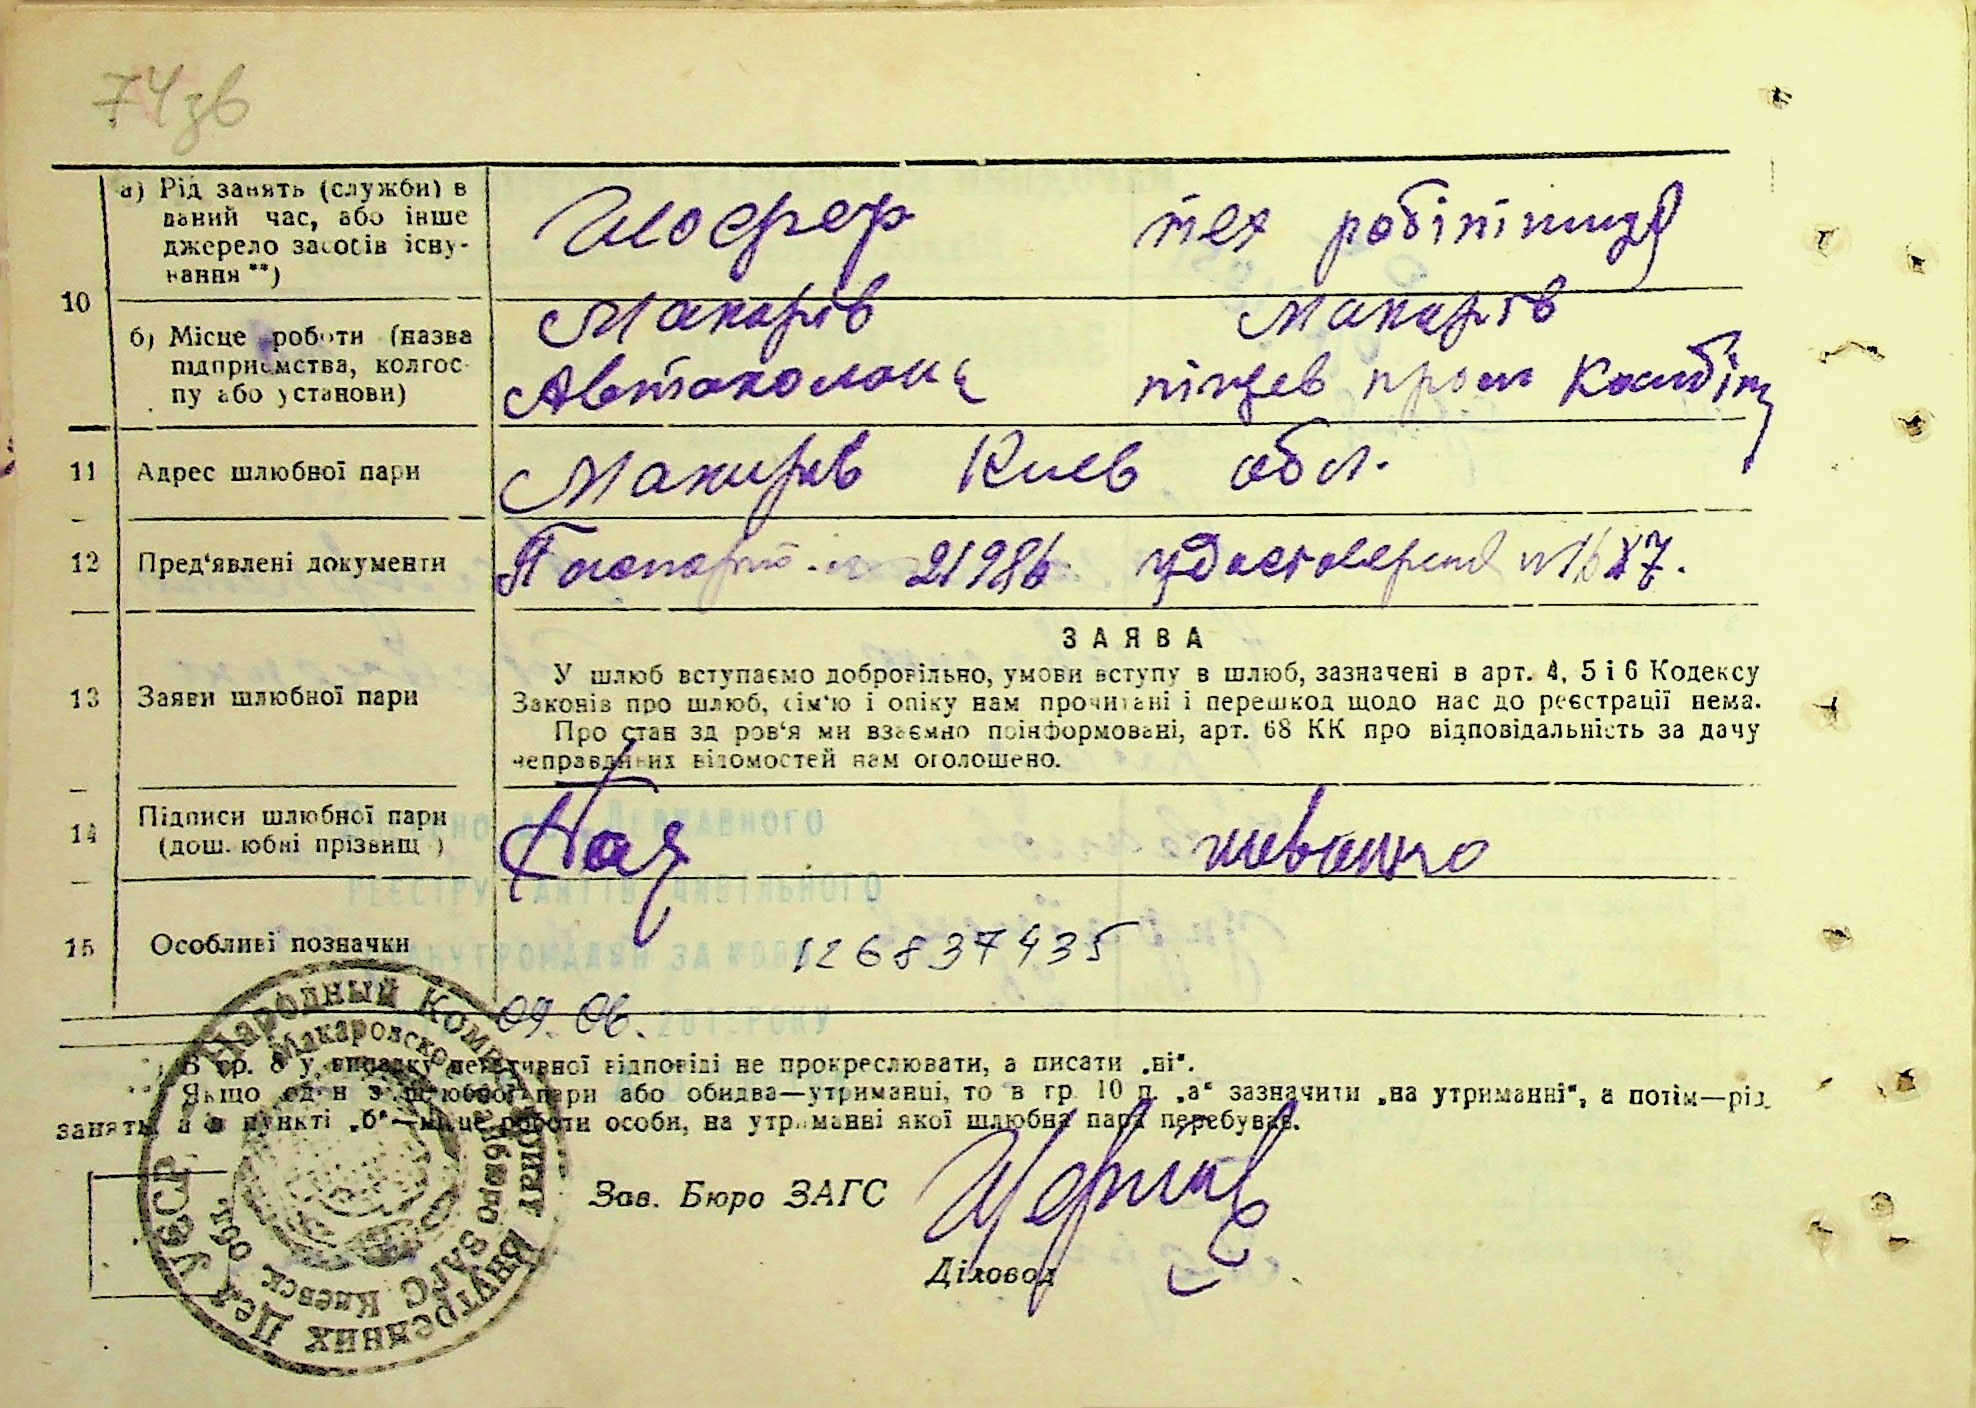 74зв
10
а) Рід занять (служби) в
даний час, або інше
джерело засобів існу-
вання **)
Шофер
тех робітниця
б) Місце роботи (назва
підприємства, колгос-
пу або установи)
Макарів
Автоколона
Макарів
піщев пром Комбінат
11
Адрес шлюбної пари
Макарів Киев обл.
12
Пред'явлені документи
Паспорт 21986 удостоверения №1687.
13
Заяви шлюбної пари
ЗАЯВА
У шлюб вступаємо добровільно, умови вступу в шлюб, зазначені в арт. 4, 5 і 6 Кодексу
Законів про шлюб, сім'ю і опіку нам прочитані і перешкод щодо нас до реєстрації нема.
Про стан здоров'я ми взаємно поінформовані, арт. 68 КК про відповідальність за дачу
неправдивих відомостей нам оголошено.
14
Підписи шлюбної пари
(дошлюбні прізвищ )
шевченко
15
Особливі позначки
126837435
09. 06.
ДЕРЖАВНОГО
РЕЄСТРУ АКТІВ ЦИВІЛЬНОГО
РОКУ
*) В гр. 8 у випадку негативної відповіді не прокреслювати, а писати „ні“.
**) Якщо один з шлюбної пари або обидва—утриманці, то в гр. 10 п. „а“ зазначити „на утриманні“, а потім—рід
занять, а в пункті „б“—місце роботи особи, на утриманні якої шлюбна пара перебуває.
Зав. Бюро ЗАГС
Діловод
Народный Комиссариат Внутренних Дел УССР
Макаровское бюро ЗАГС Киевск. обл.